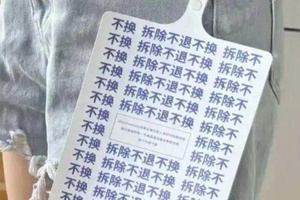 不换 拆除不退不换 拆除不
不换 拆除不退不换 拆除不
不换 拆除不退不换 拆除不
不换 拆除不退不换 拆除不
不换 拆除不退不换 拆除不
不换 拆除不
不换 拆除不
不换 拆除不退不换 拆除不
不换 拆除不退不换 拆除不
不换 拆除不退不换 拆除不
不换 拆除不退不换